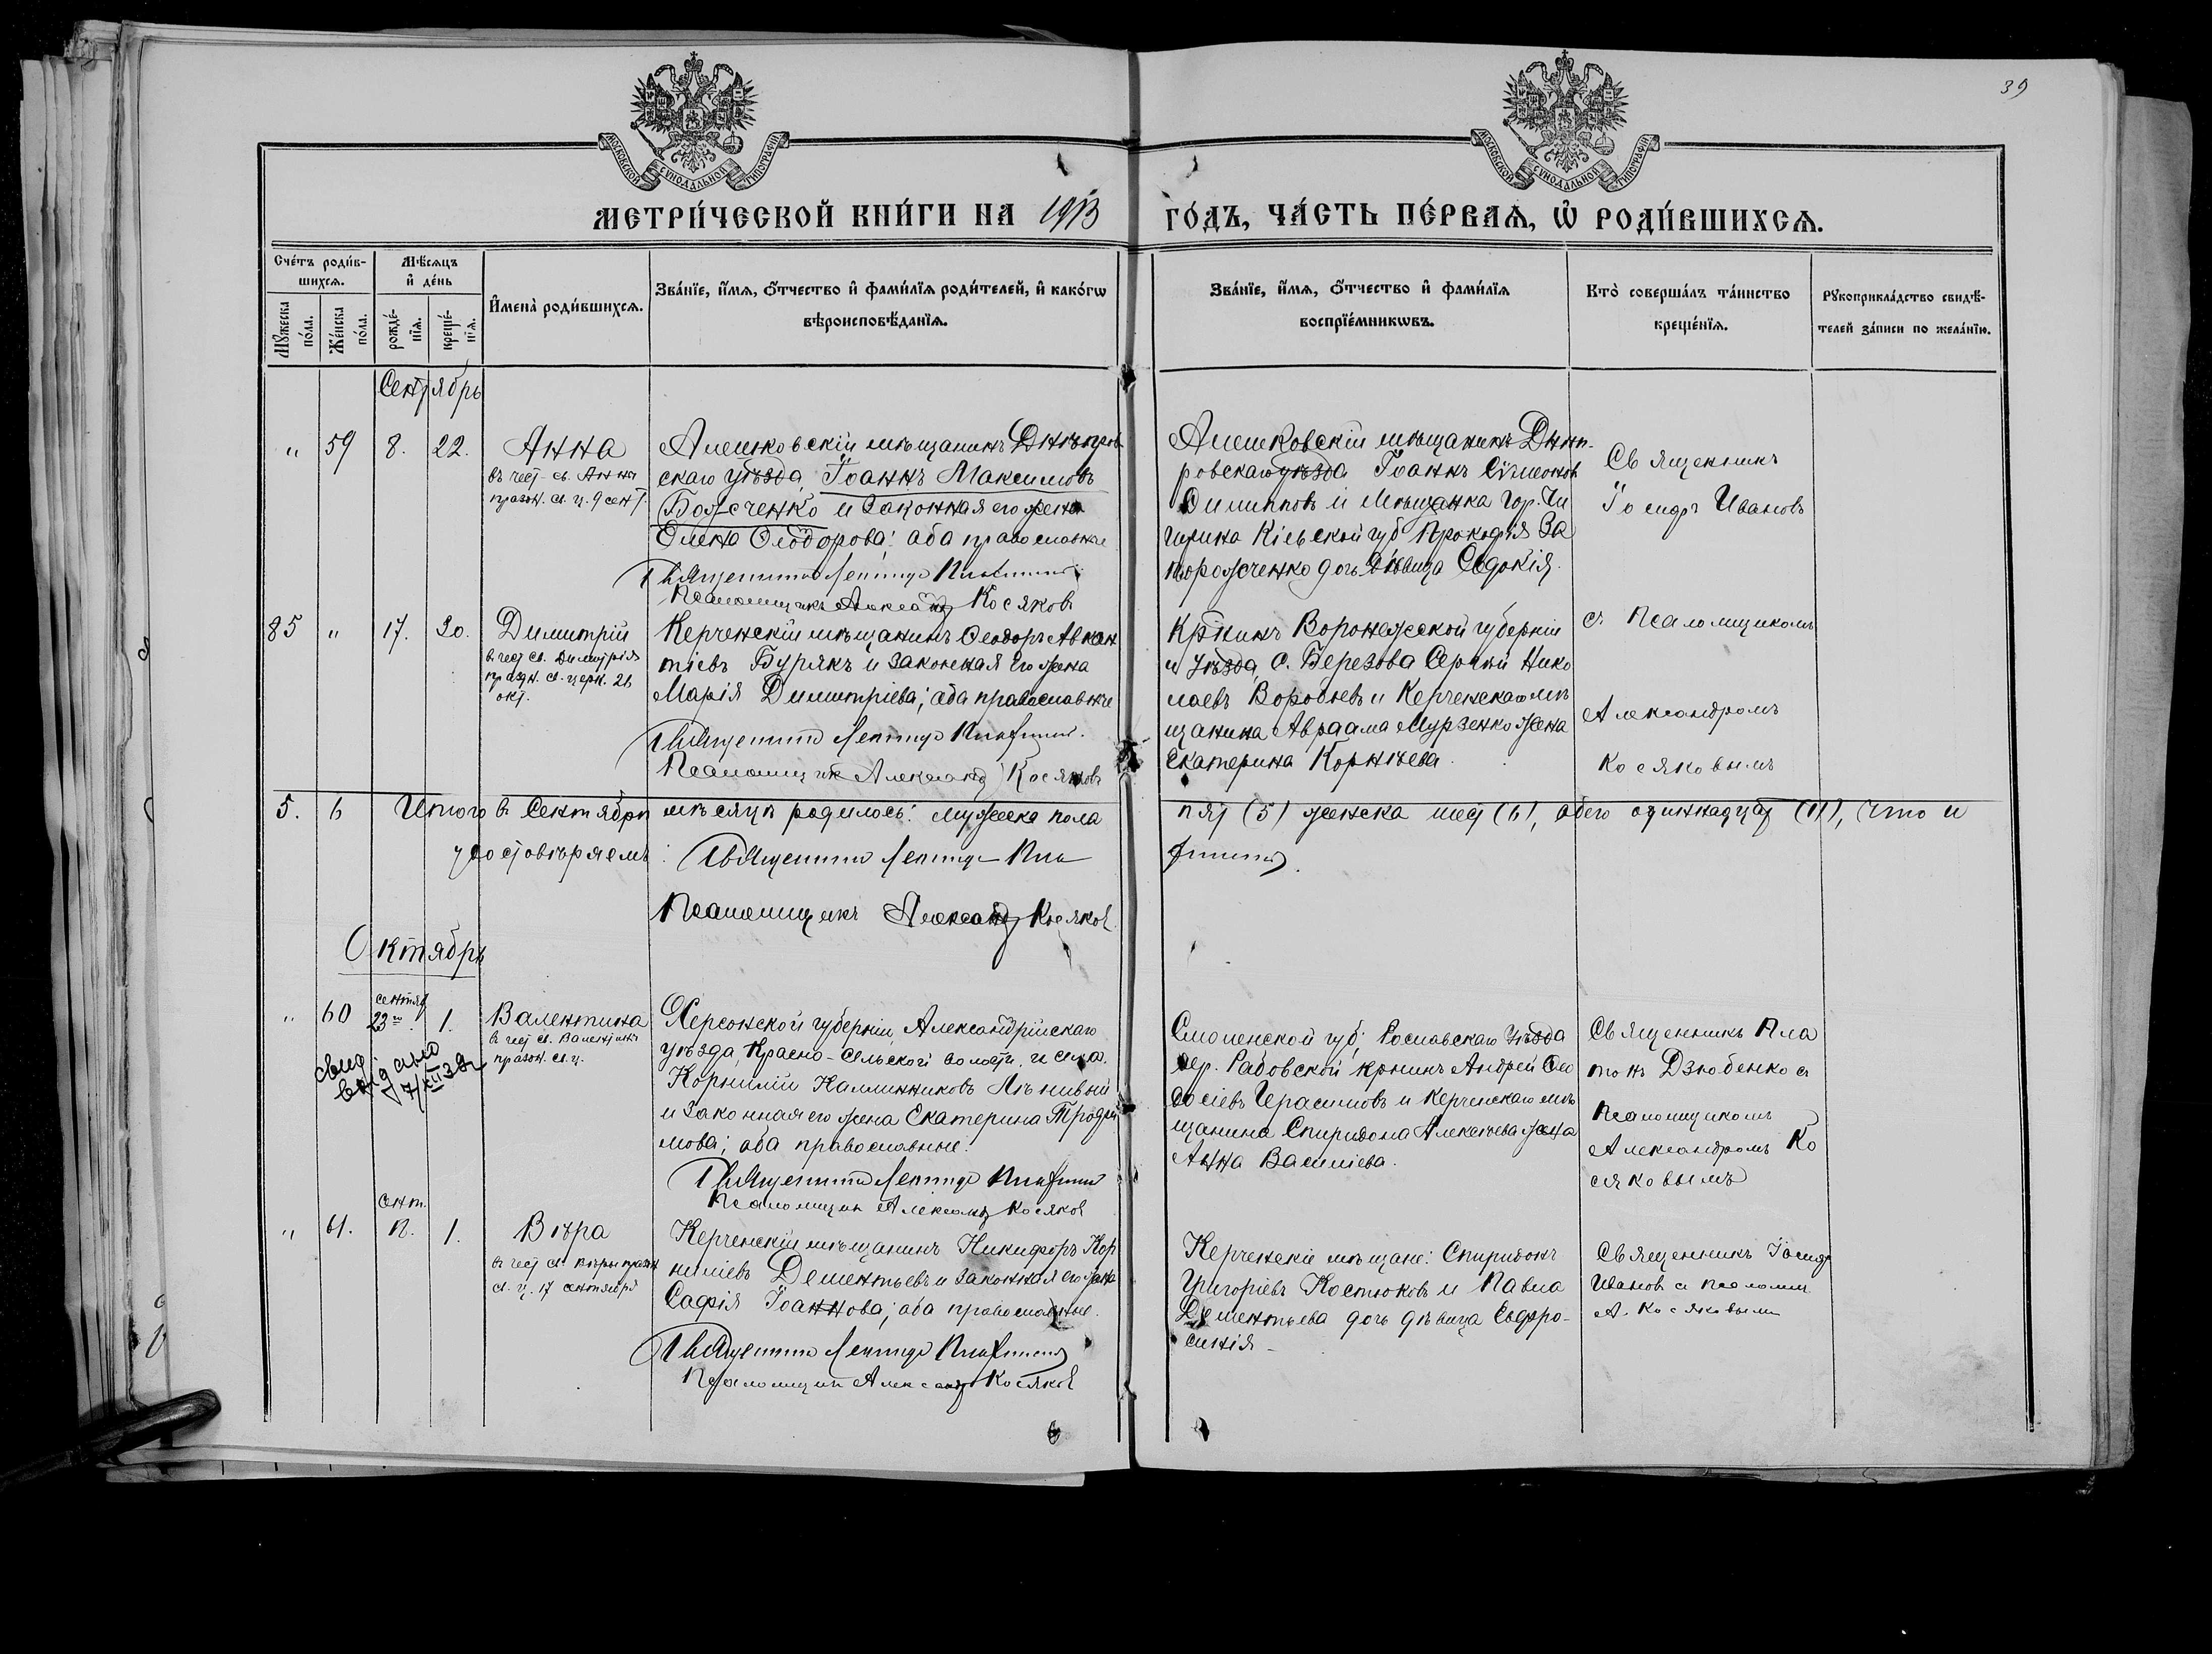 39
МОСКОВСКОЙ СѴНОДАЛЬНОЙ ТИПОГРАФІИ
МОСКОВСКОЙ СѴНОДАЛЬНОЙ ТИПОГРАФІИ
МЕТРИ́ЧЕСКОЙ КНИ́ГИ НА 1913 ГО́ДЪ, ЧА́СТЬ ПЕ́РВАѦ, Ѡ҆ РОДИ́ВШИХСѦ.
Сче́тъ роди́в-
шихсѧ.
Мꙋжеска
по́ла.
Же́нска
по́ла.
Мѣ́сѧцъ
и҆ де́нь
рожде́-
нїѧ.
креще́-
нїѧ.
И҆мена̀ роди́вшихсѧ.
Зва́нїе, и҆́мѧ, ѻ҆́тчество и҆ фами́лїѧ роди́телей, и҆ како́гѡ
вѣроисповѣ́данїѧ.
Зва́нїе, и҆́мѧ, ѻ҆́тчество и҆ фами́лїѧ
воспрїе́мникѡвъ.
Кто̀ соверша́лъ та́инство
креще́нїѧ.
Рꙋкоприкла́дство свидѣ́-
телей за́писи по жела́нїю.
Сентябрь
" 59 8. 22. Анна
въ чест. св. Анны
празн. св. ц. 9 сент.
Алешковскій мѣщанинъ Днѣпров
скаго уѣзда, Іоаннъ Максимовъ
Божченко и законная его жена
Елена Ѳеодорова; оба православные
Священникъ
Псаломщикъ Александръ Косяковъ
Алешковскій мѣщанинъ Днѣп-
ровскаго уѣзда Іоаннъ Симеоновъ
Филипповъ и мѣщанка гор. Чи
гирина Кіевской губ. Прокофія За
порожченко дочь дѣвица Евдокія.
Священникъ
Іосифъ Ивановъ
85 " 17. 30. Димитрій
въ чест. св. Димитрія
празн. св. церк. 26
окт.
Керченскій мѣщанинъ Ѳеодоръ Авксен
тіевъ Бурякъ и законная его жена
Марія Димитріева; оба православные
Священникъ
Псаломщикъ Александръ Косяковъ
Кр̃нинъ Воронежской губерніи
и уѣзда, с. Березова Сергѣй Нико
лаевъ Воробьевъ и Керченскаго мѣ
щанина Авраама Мурзенко жена
Екатерина Корнѣева.
съ Псаломщикомъ
Александромъ
Косяковымъ
5. 6 Итого въ Сентябрѣ мѣсяцѣ родилось: мужеска пола пять (5) женска шесть (6), обоего одиннадцать (11), что и
удостовѣряемъ: Священникъ
Псаломщикъ Александръ Косяковъ
Октябрь
" 60 сентяб. 23го. 1. Валентина
въ чест. св. Валентины
празн. св. ц.
свид.
выдано
7/XII 32
Херсонской губерніи, Александрійскаго
уѣзда, Красно-Сельской волости и села.
Корнилій Калинниковъ Лѣнивый
и законная его жена Екатерина Трофи
мова; оба православные.
Священникъ
Псаломщикъ Александръ Косяковъ
Смоленской губ; Рославскаго уѣзда
дер. Радовской кр̃нинъ Андрей Ѳео
досіевъ Герасимовъ и Керченскаго мѣ
щанина Спиридона Алексѣева жена
Анна Васильева.
Священникъ Пла
тонъ Дзюбенко съ
Псаломщикомъ
Александромъ Ко
сяковымъ
" 61. сент. 12. 1. Вѣра
въ чест. св. Вѣры празн.
св. ц. 17 сентября
Керченскій мѣщанинъ Никифоръ Кор
ниліевъ Дементьевъ и законная его жена
Софія Іоаннова; оба православные.
Священникъ
Псаломщикъ Александръ Косяковъ
Керченскіе мѣщане: Спиридонъ
Григоріевъ Костюковъ и Павла
Дементьева дочь дѣвица Евфро-
синія
Священникъ Іосифъ
Ивановъ съ Псаломщ.
А. Косяковымъ